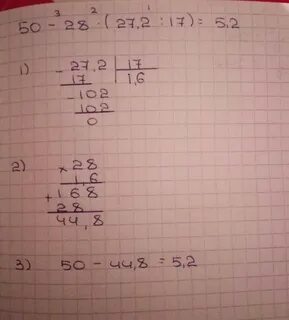 3 2 1
50 - 28 · (27,2 : 17) = 5,2
1)
- 27,2 | 17
17 1,6
- 102
102
0
2)
× 28
1,6
+ 168
28
44,8
3) 50 - 44,8 = 5,2